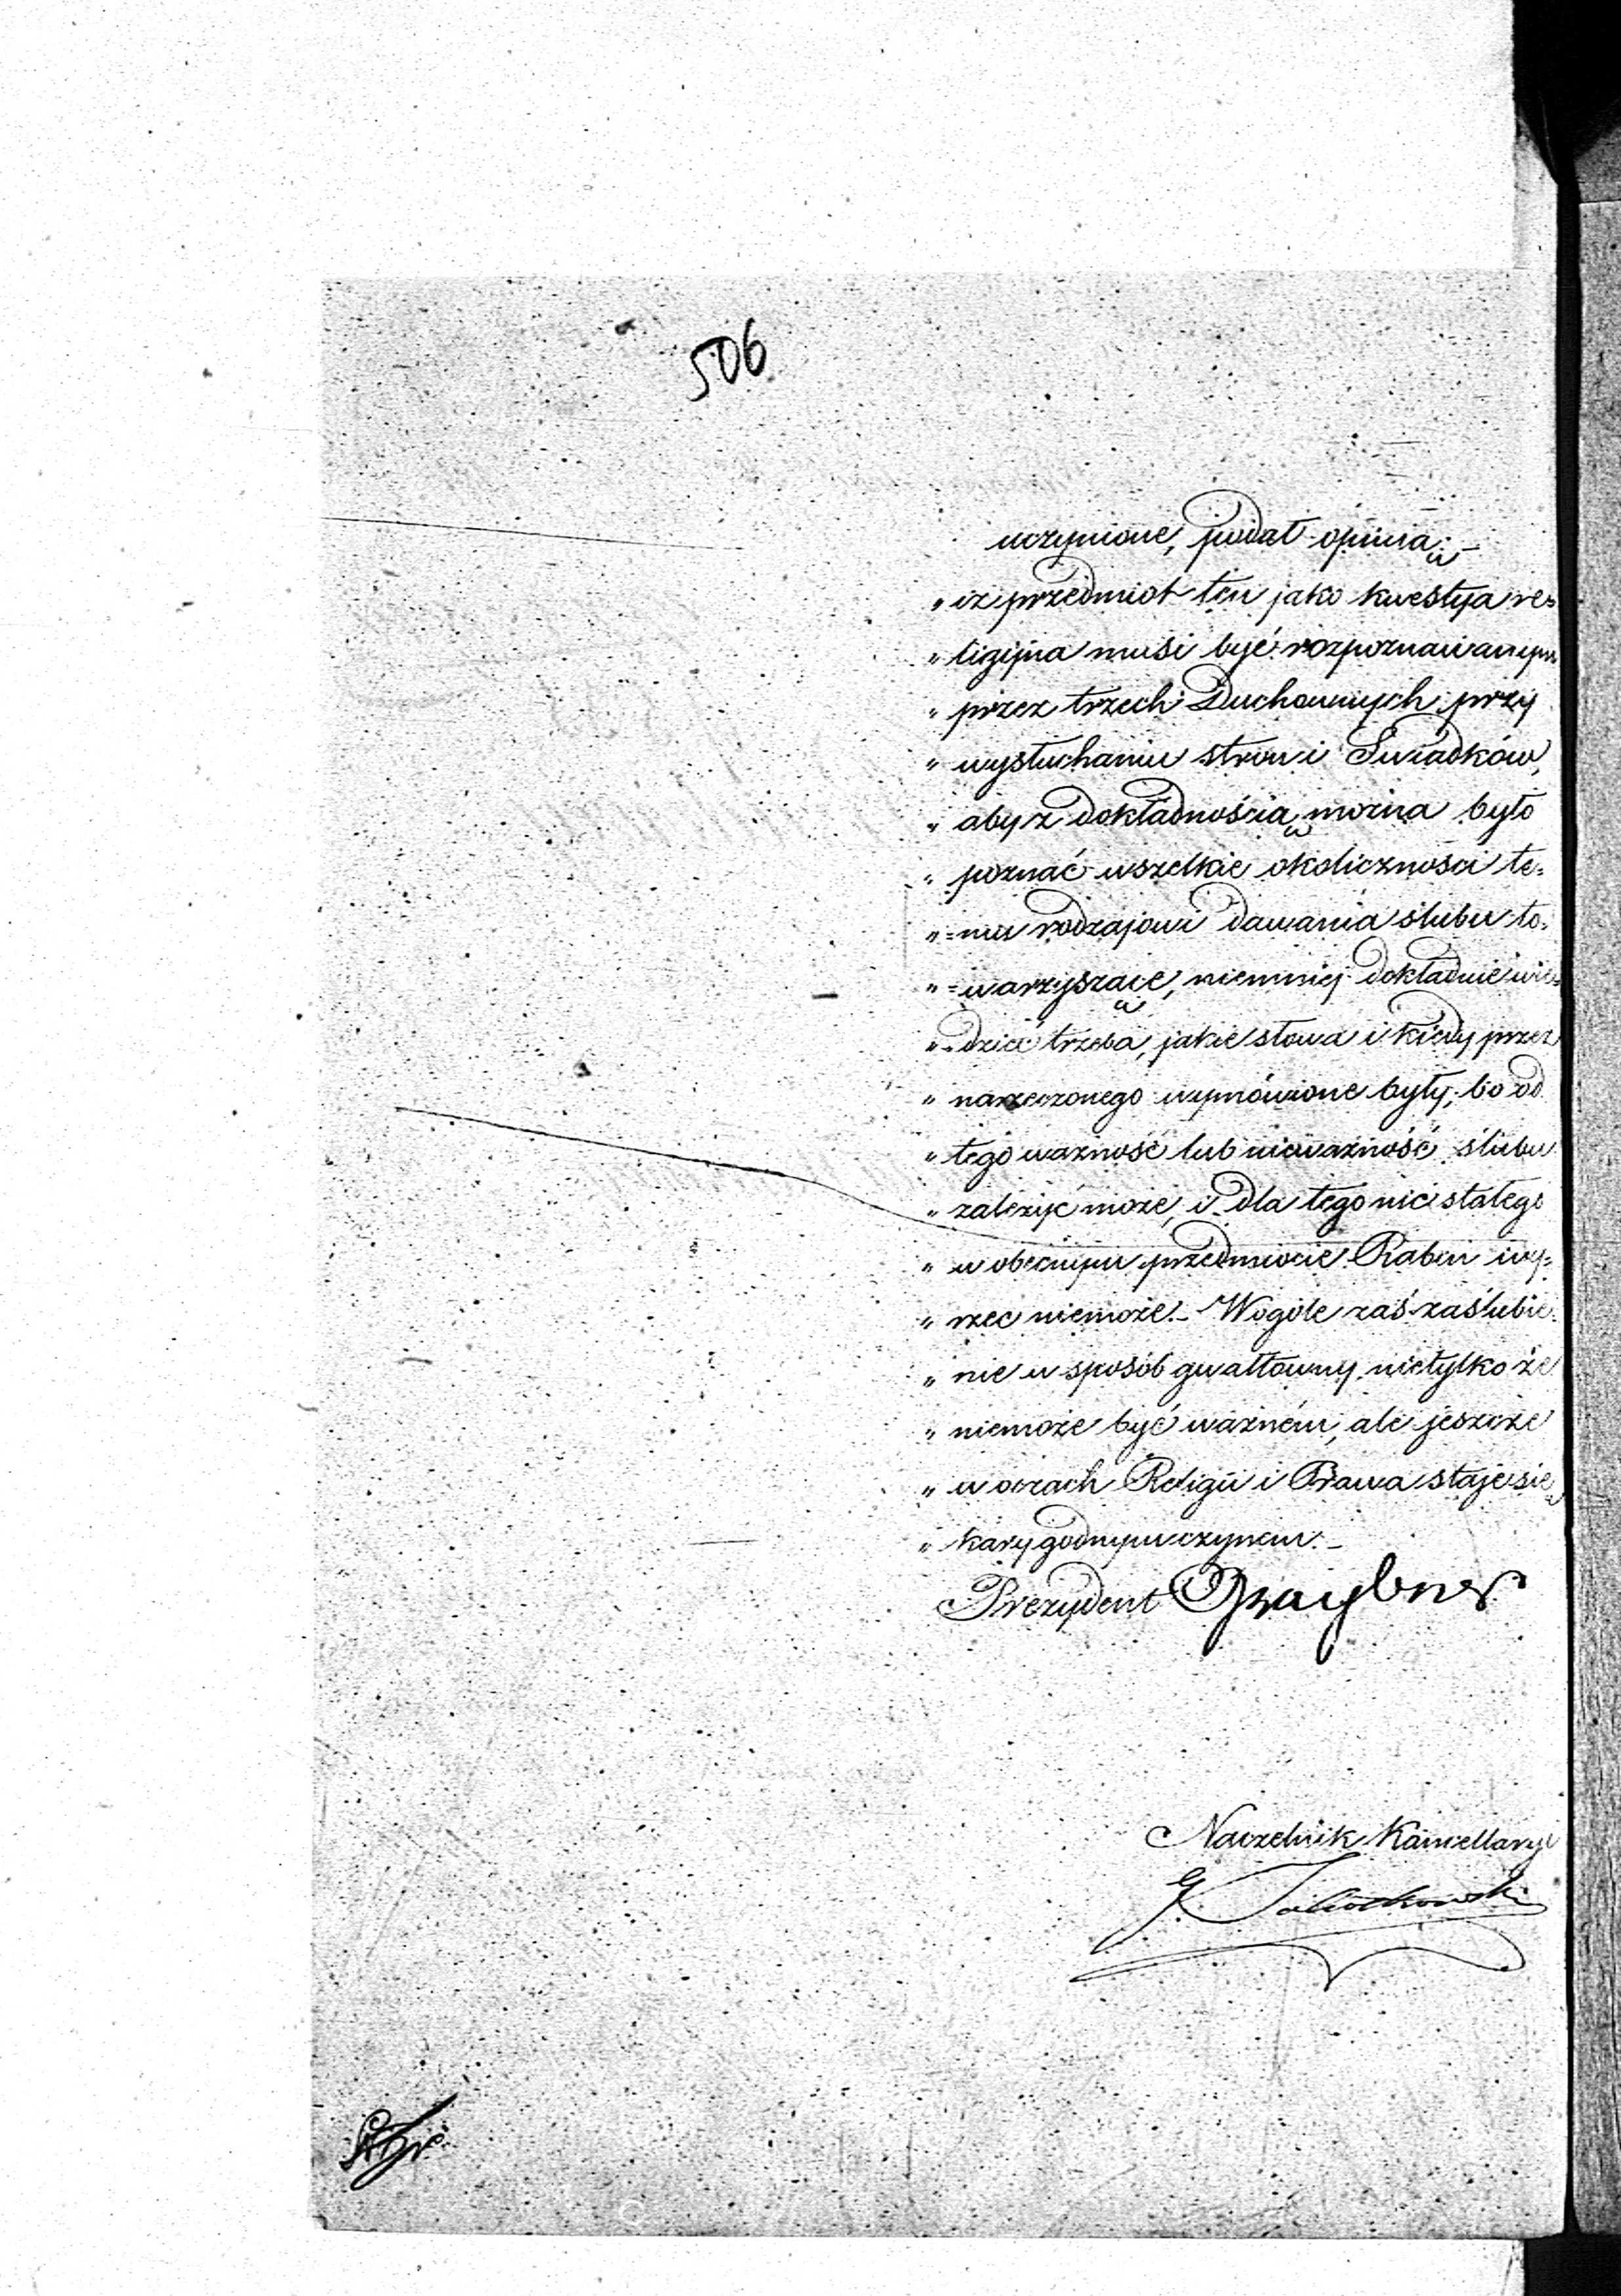 506
uczynione, podał opinią:–
„ iż przedmiot ten jako kwestya re=
„ ligijna musi być rozpoznawanym
„ przez trzech Duchownych przy
„ wysłuchaniu stron i Świadków,
„ aby z dokładnością można było
„ poznać wszelkie okoliczności te=
„ =mu rodzajowi dawania ślubu to=
„ =warzyszące, niemniej dokładnie wie=
„ =dzieć trzeba, jakie słowa i kiedy przez
„ narzeczonego wymówione były, bo od
„ tego ważność lub nieważność ślubu
„ zależyć może, i dla tego nic stałego
„ w obecnym przedmiocie Rabin wy=
„ rzec niemoże.– Wogóle zaś zaślubie=
„ nie w sposób gwałtowny nietylko że
„ niemoże być ważném, ale jeszcze
„ w oczach Religii i Prawa staje się
„ karygodnym czynem.–
Prezydent Graybner
Naczelnik Kancellaryi